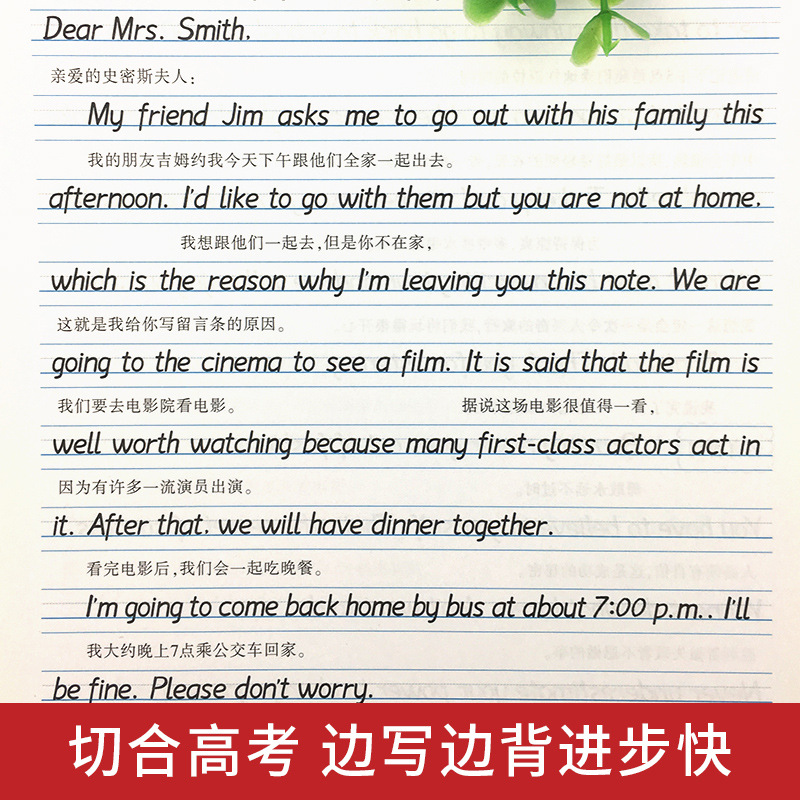 Dear Mrs. Smith.
亲爱的史密斯夫人：
My friend Jim asks me to go out with his family this
我的朋友吉姆约我今天下午跟他们全家一起出去。
afternoon. I'd like to go with them but you are not at home.
我想跟他们一起去,但是你不在家,
which is the reason why I'm leaving you this note. We are
这就是我给你写留言条的原因。
going to the cinema to see a film. It is said that the film is
我们要去电影院看电影。 据说这场电影很值得一看,
well worth watching because many first-class actors act in
因为有许多一流演员出演。
it. After that. we will have dinner together.
看完电影后,我们会一起吃晚餐。
I'm going to come back home by bus at about 7:00 p.m.. I'll
我大约晚上7点乘公交车回家。
be fine. Please don't worry.
切合高考 边写边背进步快